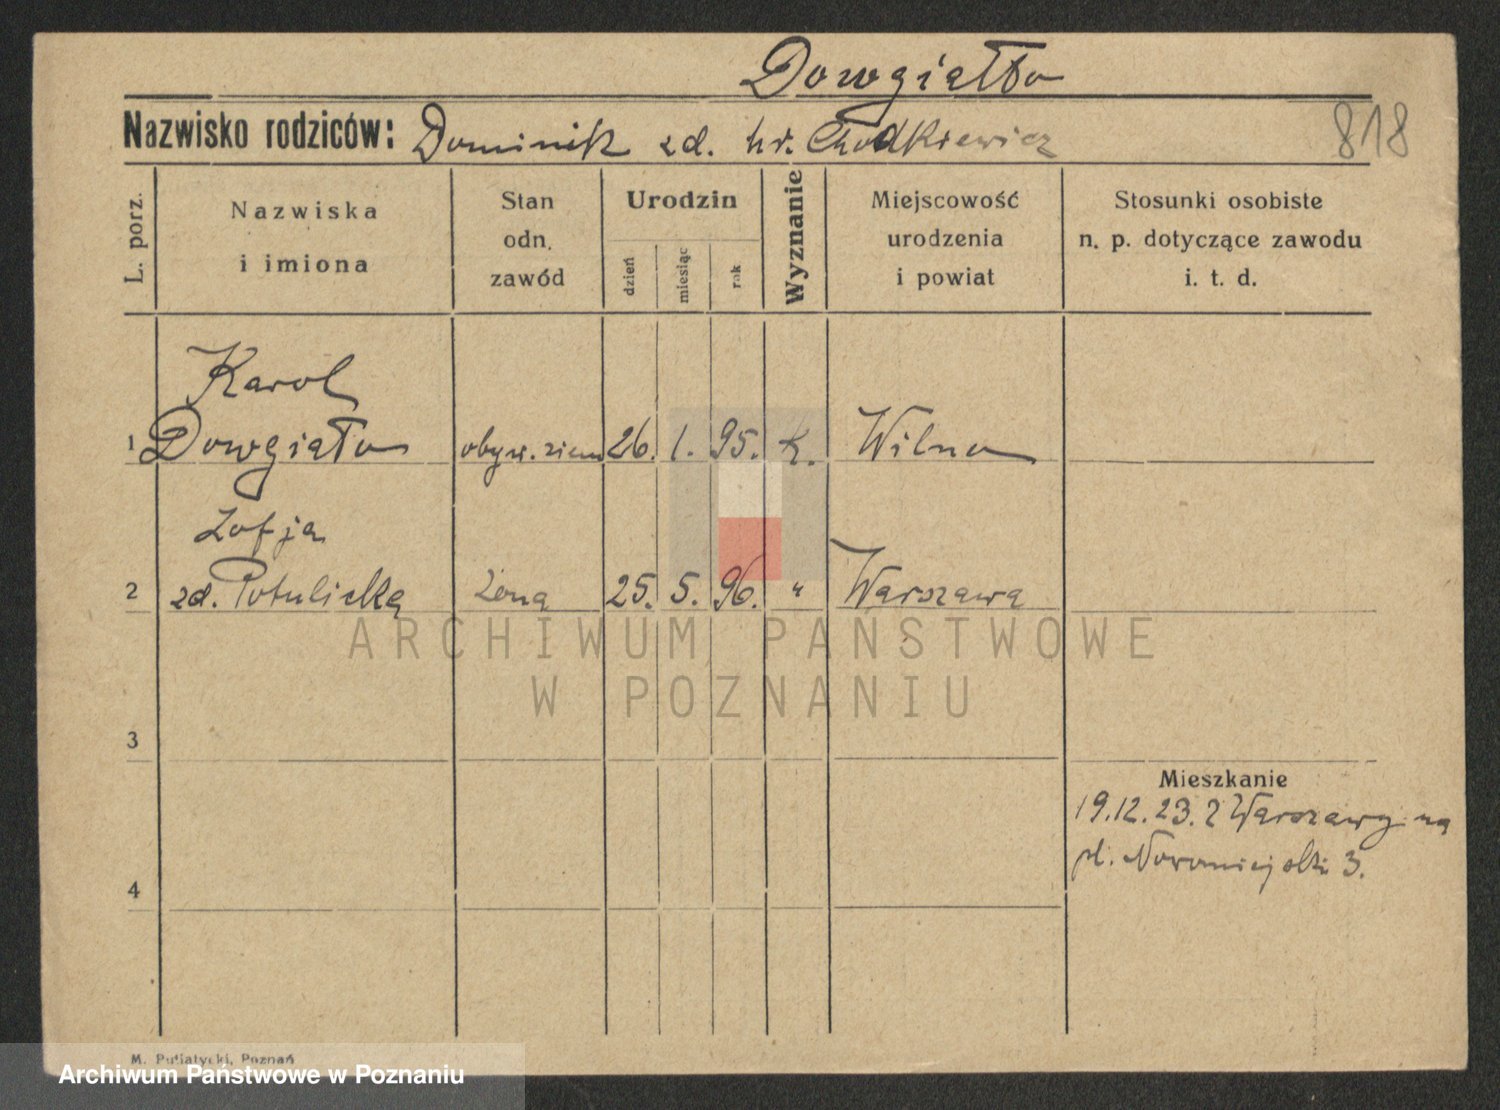 Dowgiałło
Nazwisko rodziców: Dominik zd. hr. Chodkiewicz
818
L. porz.
Nazwiska
i imiona
Stan
odn.
zawód
Urodzin
dzień
miesiąc
rok
Wyznanie
Miejscowość
urodzenia
i powiat
Stosunki osobiste
n. p. dotyczące zawodu
i. t. d.
Karol
1 Dowgiało obyw. ziem 26. 1. 95. k. Wilno
Zofja
2 zd. Potulicką żona 25. 5. 96. " Warszawa
ARCHIWUM PAŃSTWOWE
W POZNANIU
3
Mieszkanie
19.12.23. z Warszawy na
pl. Nowomiejski 3.
4
M. Putiatycki, Poznań
Archiwum Państwowe w Poznaniu